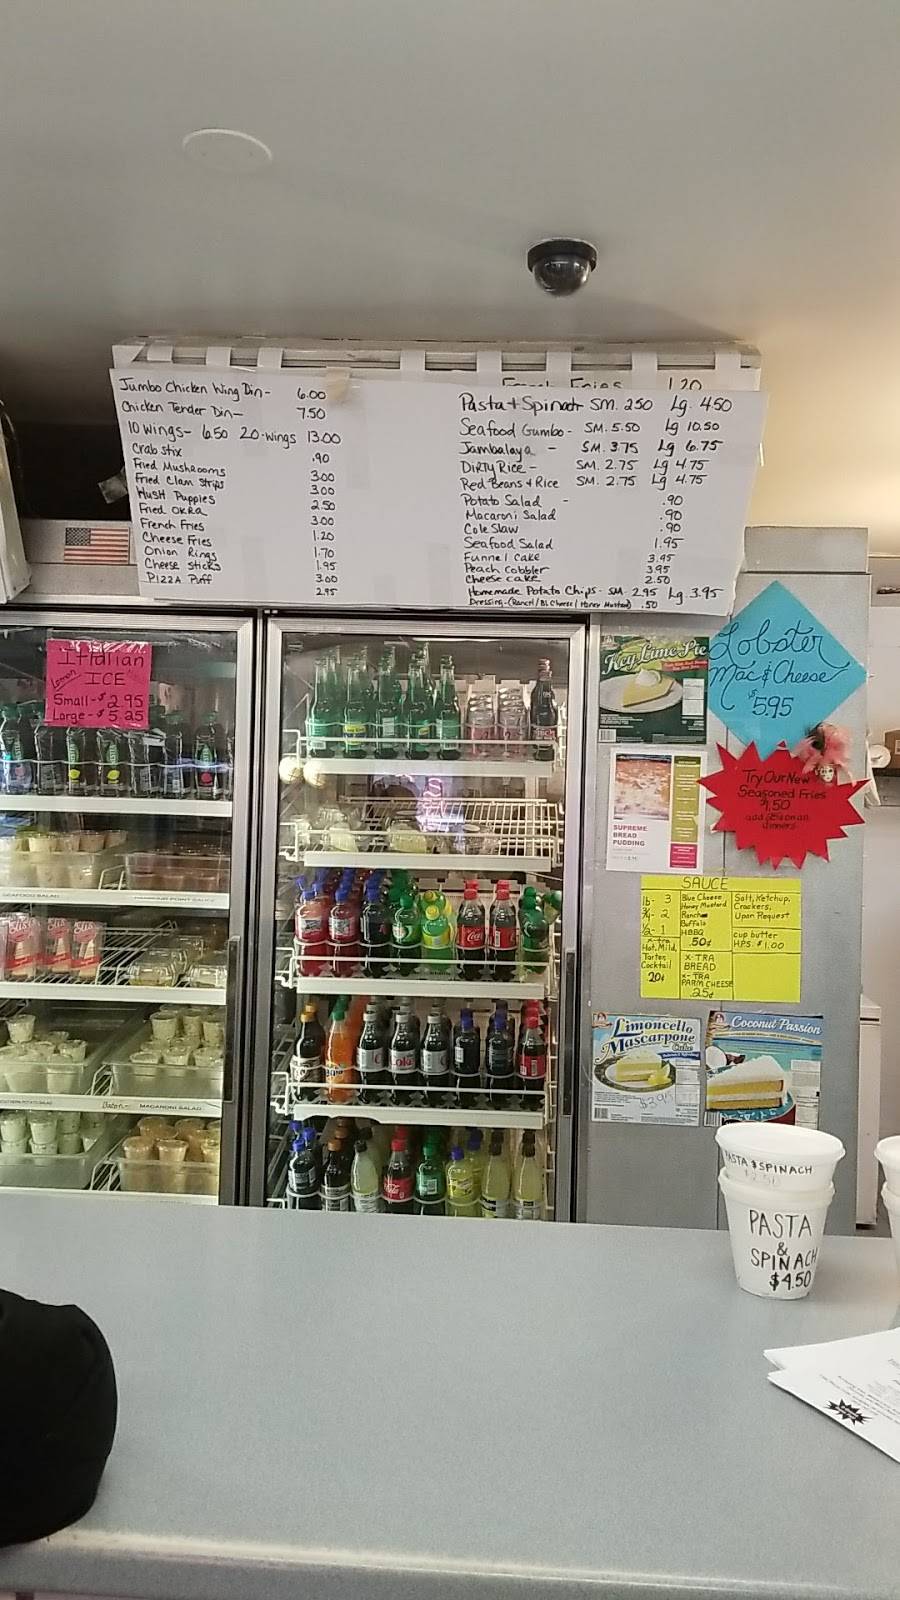 French Fries 1.20
Jumbo Chicken Wing Din- 6.00
Chicken Tender Din- 7.50
10 Wings- 6.50 20-Wings 13.00
Crab Stix .90
Fried Mushrooms 3.00
Fried Clam Strips 3.00
Hush Puppies 2.50
Fried OKRA 3.00
French Fries 1.20
Cheese Fries 1.70
Onion Rings 1.95
Cheese sticks 3.00
PIZZA Puff 2.95
Pasta + Spinach SM. 2.50 Lg. 4.50
Seafood Gumbo - SM. 5.50 Lg 10.50
Jambalaya - SM. 3.75 Lg 6.75
DiRTy Rice - SM. 2.75 Lg 4.75
Red Beans + Rice SM. 2.75 Lg 4.75
Potato Salad - .90
Macaroni Salad .90
Cole Slaw .90
Seafood Salad 1.95
Funnel Cake 3.95
Peach Cobbler 3.95
Cheese cake 2.50
Homemade Potato Chips - SM. 2.95 Lg. 3.95
Dressing - (Ranch / Bl. Cheese / Honey Mustard) .50
Ittalian
Lemon ICE
Small - $2.95
Large - $5.25
Key Lime Pie
Lobster
Mac & Cheese
$5.95
Try Our New
Seasoned Fries
$1.50
SUPREME
BREAD
PUDDING
SAUCE
lb - 3
3/4 - 2
1/2 - 1
x-tra
Hot, Mild,
Tarter,
Cocktail
20¢
Blue Cheese
Honey Mustard
Ranch
Buffalo
HBBQ
.50¢
X-TRA
BREAD
X-TRA
PARM CHEESE
.25¢
Salt, Ketchup,
Crackers,
Upon Request
cup butter
HPS. $1.00
Limoncello
Mascarpone
Cake
$3.95
Coconut Passion
SEAFOOD SALAD
MACARONI SALAD
Coke
PASTA & SPINACH
$2.50
PASTA
&
SPINACH
$4.50